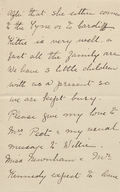 after that she either comes
to the Tyne or to Cardiff
Kittie is very well, in
fact all the family are
We have 3 little children
with us at present so
we are kept busy.
Please give my love to
Mrs Peat & my usual
message to Willie
Miss Newnham & Mrs
Kennedy expect to